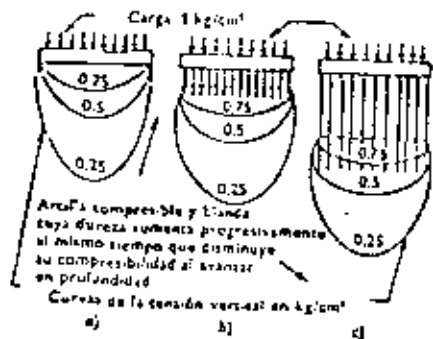 Carga 1 kg/cm²
0.75
0.5
0.25
0.75
0.5
0.25
0.75
0.5
0.25
Arcilla compresible y blanda
cuya dureza aumenta progresivamente
al mismo tiempo que disminuye
su compresibilidad al avanzar
en profundidad
Curvas de la tensión vertical en kg/cm²
a)
b)
c)